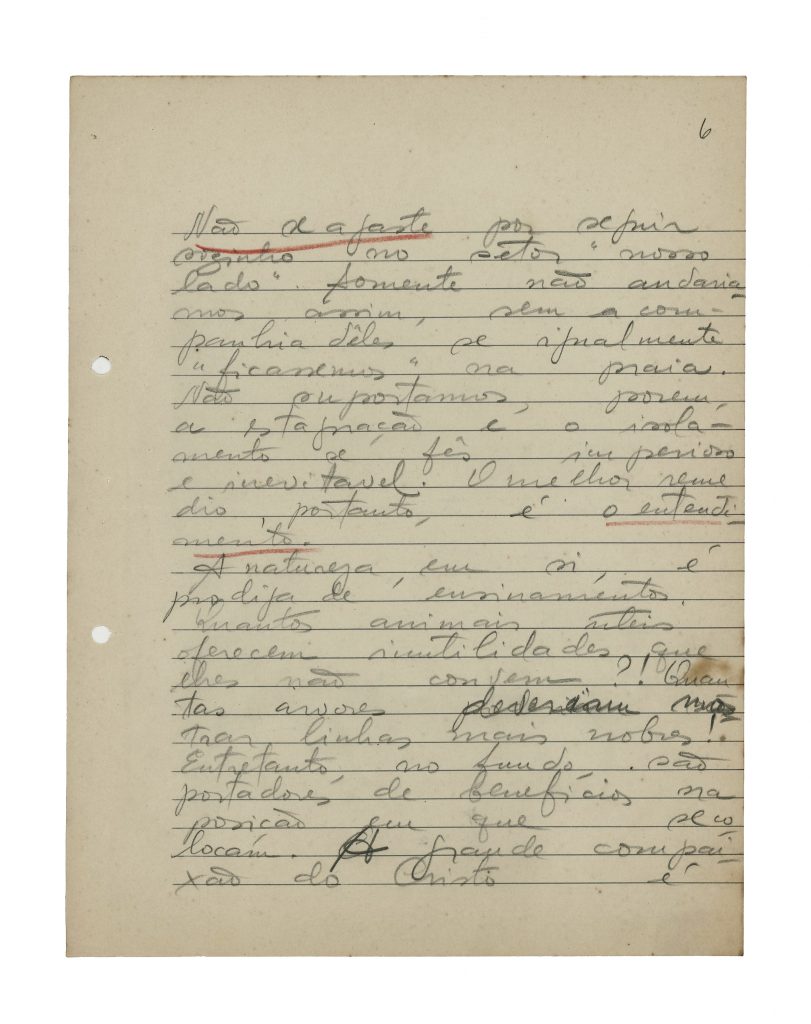 6
Não se afaste por seguir
sozinho no setor "nosso
lado". Somente não andaria-
mos assim, sem a com-
panhia dêles se igualmente
"ficassemos" na praia.
Não suportamos, porem,
a estagnação e o isola-
mento se fês imperioso
e inevitavel. O melhor reme
dio, portanto, é o entendi-
mento.
A natureza, em si, é
prodiga de ensinamentos.
Quantos animais uteis
oferecem inutilidades que
lhes não convem?! Quan
tas arvores deveriam mos
trar linhas mais nobres!
Entretanto, no fundo, são
portadores de benefícios na
posição em que se co-
locam. A grande compai-
xão do Cristo é